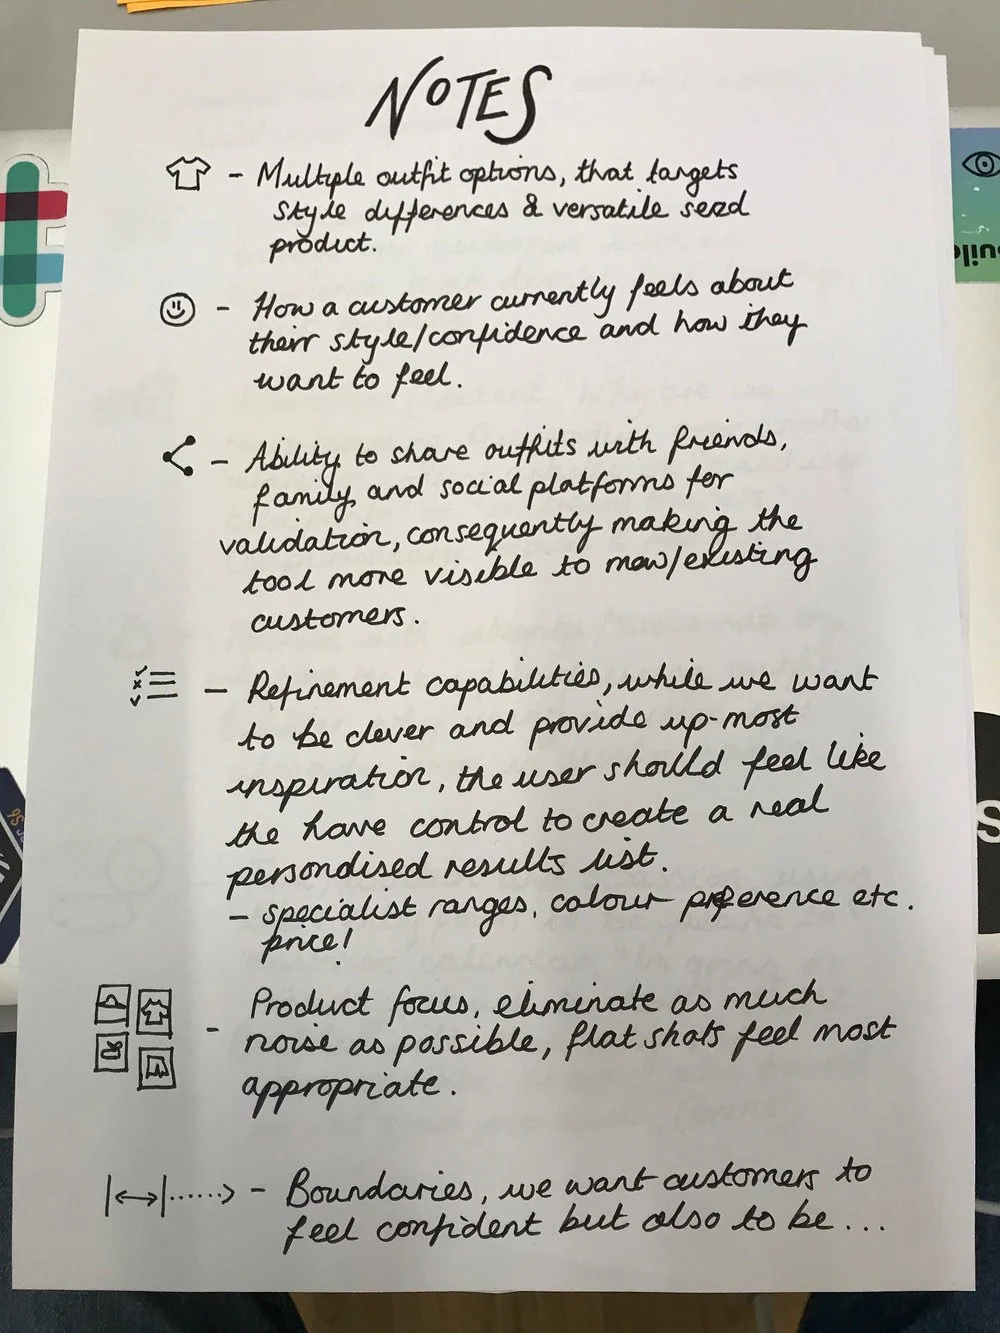 NOTES
- Multiple outfit options, that targets
style differences & versatile seed
product.
- How a customer currently feels about
their style/confidence and how they
want to feel.
- Ability to share outfits with friends,
family, and social platforms for
validation, consequently making the
tool more visible to new/existing
customers.
- Refinement capabilities, while we want
to be clever and provide up-most
inspiration, the user should feel like
the have control to create a real
personalised results list.
- specialist ranges, colour preference etc.
price!
- Product focus, eliminate as much
noise as possible, flat shots feel most
appropriate.
- Boundaries, we want customers to
feel confident but also to be...